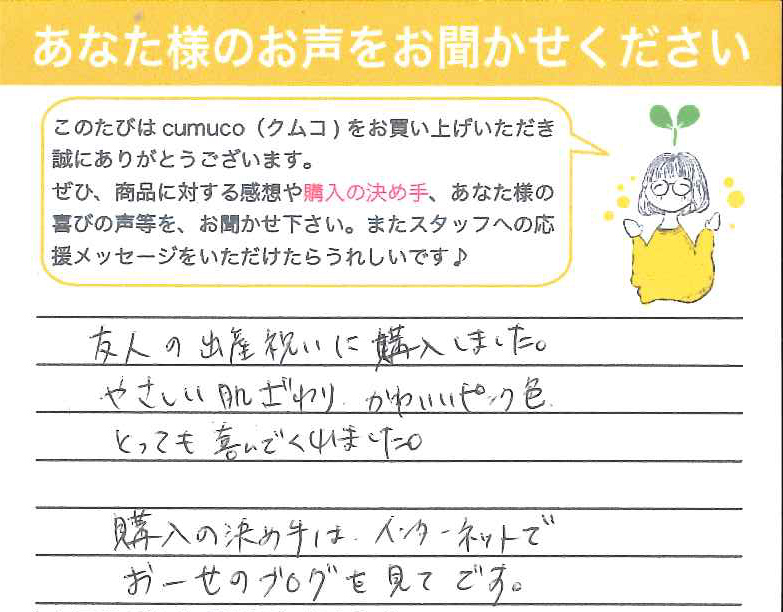 あなた様のお声をお聞かせください
このたびは cumuco（クムコ）をお買い上げいただき
誠にありがとうございます。
ぜひ、商品に対する感想や購入の決め手、あなた様の
喜びの声等を、お聞かせ下さい。またスタッフへの応
援メッセージをいただけたらうれしいです♪
友人の出産祝いに購入しました。
やさしい肌ざわり、かわいいピンク色、
とっても喜んでくれました。
購入の決め手は、インターネットで
おーせのブログを見てです。